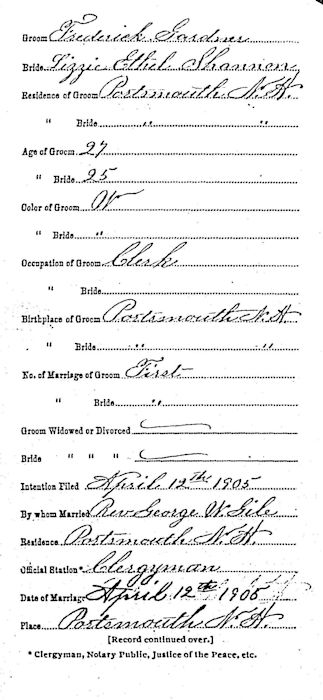 Groom Frederick Gardner
Bride Lizzie Ethel Shannon
Residence of Groom Portsmouth N.H.
" Bride " "
Age of Groom 27
" Bride 25
Color of Groom W
" Bride "
Occupation of Groom Clerk
" Bride
Birthplace of Groom Portsmouth N.H.
" Bride " "
No. of Marriage of Groom First
" Bride "
Groom Widowed or Divorced
Bride " " "
Intention Filed April 12th 1905
By whom Married Rev George W. Gile
Residence Portsmouth N.H.
Official Station* Clergyman
Date of Marriage April 12th 1905
Place Portsmouth N.H.
[Record continued over.]
* Clergyman, Notary Public, Justice of the Peace, etc.